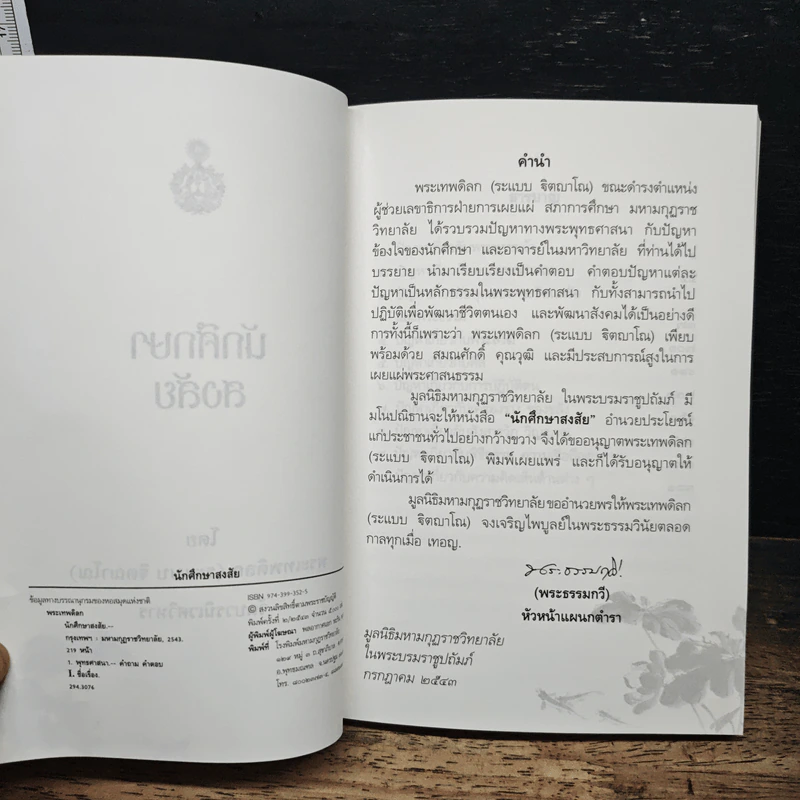 นักศึกษาสงสัย
ข้อมูลทางบรรณานุกรมของหอสมุดแห่งชาติ
พระเทพดิลก
นักศึกษาสงสัย.--
กรุงเทพฯ : มหามกุฏราชวิทยาลัย, 2543.
219 หน้า
1. พุทธศาสนา.-- คำถาม คำตอบ
I. ชื่อเรื่อง.
294.3076
ISBN 974-399-352-5
© สงวนลิขสิทธิ์ตามพระราชบัญญัติ
พิมพ์ครั้งที่ ๒/๒๕๔๓
ผู้พิมพ์ผู้โฆษณา
พิมพ์ที่ โรงพิมพ์มหามกุฏราชวิทยาลัย
คำนำ
พระเทพดิลก (ระแบบ ฐิตญาโณ) ขณะดำรงตำแหน่ง
ผู้ช่วยเลขาธิการฝ่ายการเผยแผ่ สภาการศึกษา มหามกุฏราช
วิทยาลัย ได้รวบรวมปัญหาทางพระพุทธศาสนา กับปัญหา
ข้องใจของนักศึกษา และอาจารย์ในมหาวิทยาลัย ที่ท่านได้ไป
บรรยาย นำมาเรียบเรียงเป็นคำตอบ คำตอบปัญหาแต่ละ
ปัญหาเป็นหลักธรรมในพระพุทธศาสนา กับทั้งสามารถนำไป
ปฏิบัติเพื่อพัฒนาชีวิตตนเอง และพัฒนาสังคมได้เป็นอย่างดี
การทั้งนี้ก็เพราะว่า พระเทพดิลก (ระแบบ ฐิตญาโณ) เพียบ
พร้อมด้วย สมณศักดิ์ คุณวุฒิ และมีประสบการณ์สูงในการ
เผยแผ่พระศาสนธรรม
มูลนิธิมหามกุฏราชวิทยาลัย ในพระบรมราชูปถัมภ์ มี
มโนปณิธานจะให้หนังสือ “นักศึกษาสงสัย” อำนวยประโยชน์
แก่ประชาชนทั่วไปอย่างกว้างขวาง จึงได้ขออนุญาตพระเทพดิลก
(ระแบบ ฐิตญาโณ) พิมพ์เผยแพร่ และก็ได้รับอนุญาตให้
ดำเนินการได้
มูลนิธิมหามกุฏราชวิทยาลัยขออำนวยพรให้พระเทพดิลก
(ระแบบ ฐิตญาโณ) จงเจริญไพบูลย์ในพระธรรมวินัยตลอด
กาลทุกเมื่อ เทอญ.
(พระธรรมกวี)
หัวหน้าแผนกตำรา
มูลนิธิมหามกุฏราชวิทยาลัย
ในพระบรมราชูปถัมภ์
กรกฎาคม ๒๕๔๓